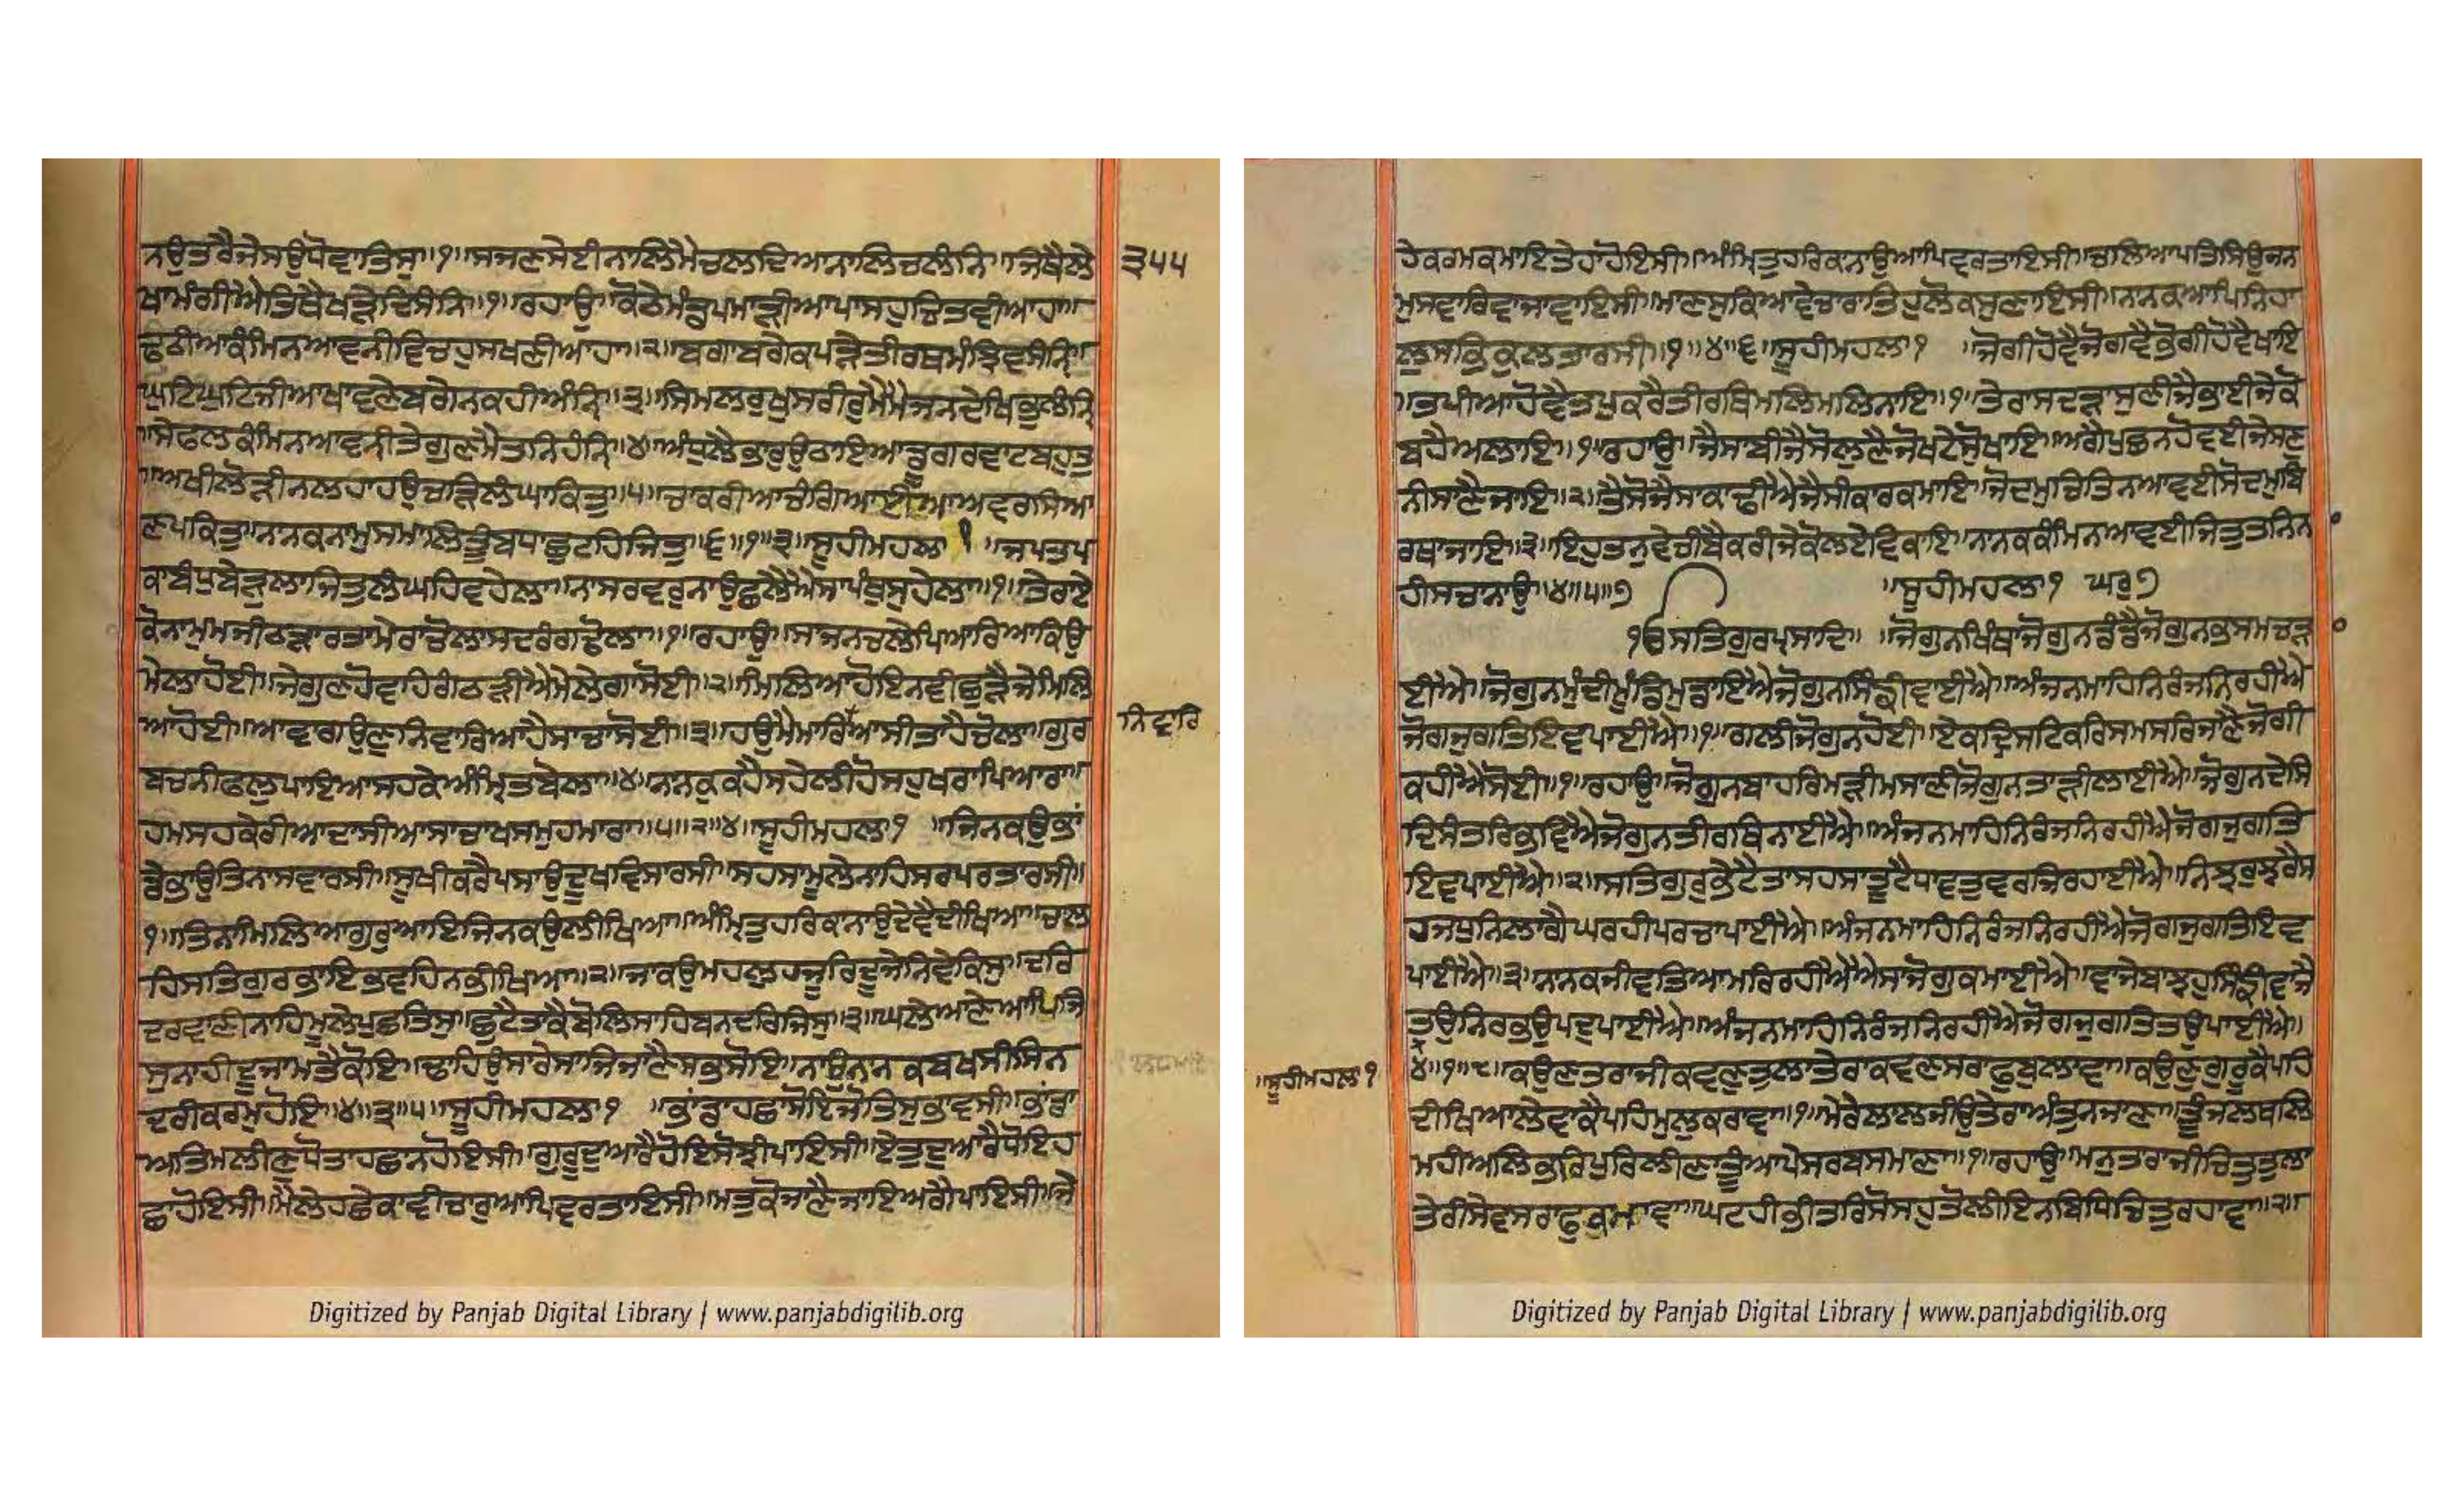 ਨਉਤਰੈਜੇਸਉਧੋਵਾਤਿਸੁ॥੧॥ਸਜਣਸੇਈਨਾਲਿਮੈਚਲਦਿਆਨਾਲਿਚਲੰਨਿ॥ਜਿਥੈਲੇ
੩੫੫
ਖਾਮੰਗੀਐਤਿਥੈਖੜੇਦਿਸੰਨਿ॥੧॥ਰਹਾਉ॥ਕੋਠੇਮੰਡਪਮਾੜੀਆਪਾਸਹੁਚਿਤਵੀਆਹਾ॥
ਢਠੀਆਕੰਮਿਨਆਵਨੀਵਿਚਹੁਸਖਣੀਆਹਾ॥੨॥ਬਗਾਬਗੇਕਪੜੇਤੀਰਥਮੰਝਿਵਸੰਨਿ॥
ਘੁਟਿਘੁਟਿਜੀਆਖਾਵਣੇਬਗੇਨਕਹੀਅੰਨਿ॥੩॥ਸਿਮਲਰੁਖੁਸਰੀਰੁਮੈਮੈਜਨਦੇਖਿਭੁਲੰਨਿ
॥ਸੇਫਲਕੰਮਿਨਆਵਨੀਤੇਗੁਣਮੈਤਨਿਹੰਨਿ॥੪॥ਅੰਧੁਲੈਭਾਰੁਉਠਾਇਆਡੂਗਰਵਾਟਬਹੁਤੁ
॥ਅਖੀਲੋੜੀਨਲਹਾਹਉਚੜਿਲੰਘਾਕਿਤੁ॥੫॥ਚਾਕਰੀਆਚੰਗਿਆਈਆਅਵਰਸਿਆ
ਣਪਕਿਤੁ॥ਨਾਨਕਨਾਮੁਸਮਾਲਿਤੂੰਬਧਾਛੁਟਹਿਜਿਤੁ॥੬॥੧॥੩॥ਸੂਹੀਮਹਲਾ੧ ॥ਜਪਤਪ
ਕਾਬੰਧੁਬੇੜੁਲਾਜਿਤੁਲੰਘਹਿਵਹੇਲਾ॥ਨਾਸਰਵਰੁਨਾਊਛਲੈਐਸਾਪੰਥੁਸੁਹੇਲਾ॥੧॥ਤੇਰਾਏ
ਕੋਨਾਮੁਮਜੀਠੜਾਰਤਾਮੇਰਾਚੋਲਾਸਦਰੰਗਢੋਲਾ॥੧॥ਰਹਾਉ॥ਸਾਜਨਚਲੇਪਿਆਰਿਆਕਿਉ
ਮੇਲਾਹੋਈ॥ਜੇਗੁਣਹੋਵਹਿਗੰਠੜੀਐਮੇਲੇਗਾਸੋਈ॥੨॥ਮਿਲਿਆਹੋਇਨਵੀਛੁੜੈਜੇਮਿਲਿ
ਆਹੋਈ॥ਆਵਾਗਉਣੁਨਿਵਾਰਿਆਹੈਸਾਚਾਸੋਈ॥੩॥ਹਉਮੈਮਾਰਿਆਸੀਤਾਹੈਚੋਲਾ॥ਗੁਰ
ਨਿਵਾਰਿ
ਬਚਨੀਫਲੁਪਾਇਆਸਹਕੇਅੰਮ੍ਰਿਤਬੋਲਾ॥੪॥ਨਾਨਕੁਕਹੈਸਹੇਲੀਹੋਸਹੁਖਰਾਪਿਆਰਾ॥
ਹਮਸਹਕੇਰੀਆਦਾਸੀਆਸਾਚਾਖਸਮੁਹਮਾਰਾ॥੫॥੨॥੪॥ਸੂਹੀਮਹਲਾ੧ ॥ਜਿਨਕਉਭਾਂ
ਡੈਭਾਉਤਿਨਾਸਵਾਰਸੀ॥ਸੂਖੀਕਰੈਪਸਾਉਦੂਖਵਿਸਾਰਸੀ॥ਸਹਸਾਮੂਲੇਨਾਹਿਸਰਪਰਤਾਰਸੀ॥
੧॥ਤਿਨਾਮਿਲਿਆਗੁਰੁਆਇਜਿਨਕਉਲੀਖਿਆ॥ਅੰਮ੍ਰਿਤੁਹਰਿਕਾਨਾਉਦੇਵੈਦੀਖਿਆ॥ਚਲ
ਹਿਸਤਿਗੁਰਭਾਇਭਵਹਿਨਭੀਖਿਆ॥੨॥ਜਾਕਉਮਹਲੁਹਜੂਰਿਦੂਜੇਨਿਵੈਕਿਸੁ॥ਦਰਿ
ਦਰਵਾਣੀਨਾਹਿਮੂਲੇਪੁਛਤਿਸੁ॥ਛੁਟੈਤਾਕੈਬੋਲਿਸਾਹਿਬਨਦਰਿਜਿਸੁ॥੩॥ਘਲੇਆਣੇਆਪਿਜਿ
ਸੁਨਾਹੀਦੂਜਾਮਤੈਕੋਇ॥ਢਾਹਿਉਸਾਰੇਸਾਜਿਜਾਣੈਸਭਸੋਇ॥ਨਾਉਨਾਨਕਬਖਸੀਸਿਨ
ਦਰੀਕਰਮੁਹੋਇ॥੪॥੩॥੫॥ਸੂਹੀਮਹਲਾ੧ ॥ਭਾਂਡਾਹਛਾਸੋਇਜੋਤਿਸੁਭਾਵਸੀ॥ਭਾਂਡਾ
ਅਤਿਮਲੀਣੁਧੋਤਾਹਛਾਨਹੋਇਸੀ॥ਗੁਰੂਦੁਆਰੈਹੋਇਸੋਝੀਪਾਇਸੀ॥ਏਤੁਦੁਆਰੈਧੋਇਹ
ਛਾਹੋਇਸੀ॥ਮੈਲੇਹਛੇਕਾਵੀਚਾਰੁਆਪਿਵਰਤਾਇਸੀ॥ਮਤੁਕੋਜਾਣੈਜਾਇਅਗੈਪਾਇਸੀ॥ਜੇ
ਹੇਕਰਮਕਮਾਇਤੇਹਾਹੋਇਸੀ॥ਅੰਮ੍ਰਿਤੁਹਰਿਕਾਨਾਉਆਪਿਵਰਤਾਇਸੀ॥ਚਲਿਆਪਤਿਸਿਉਜਨ
ਮੁਸਵਾਰਿਵਾਜਾਵਾਇਸੀ॥ਮਾਣਸੁਕਿਆਵੇਚਾਰਾਤਿਹੁਲੋਕਸੁਣਾਇਸੀ॥ਨਾਨਕਆਪਿਨਿਹਾ
ਲੁਸਭਿਕੁਲਤਾਰਸੀ॥੧॥੪॥੬॥ਸੂਹੀਮਹਲਾ੧ ॥ਜੋਗੀਹੋਵੈਜੋਗਵੈਭੋਗੀਹੋਵੈਖਾਇ
॥ਤਪੀਆਹੋਵੈਤਪੁਕਰੈਤੀਰਥਿਮਲਿਮਲਿਨਾਇ॥੧॥ਤੇਰਾਸਦੜਾਸੁਣੀਜੈਭਾਈਜੇਕੋ
ਬਹੈਅਲਾਇ॥੧॥ਰਹਾਉ॥ਜੈਸਾਬੀਜੈਸੋਲੁਣੈਜੋਖਟੇਸੋੁਖਾਇ॥ਅਗੈਪੁਛਨਹੋਵਈਜੇਸਣੁ
ਨੀਸਾਣੈਜਾਇ॥੨॥ਤੈਸੋਜੈਸਾਕਾਢੀਐਜੈਸੀਕਾਰਕਮਾਇ॥ਜੋਦਮੁਚਿਤਿਨਆਵਈਸੋਦਮੁਬਿ
ਰਥਾਜਾਇ॥੩॥ਇਹੁਤਨੁਵੇਚੀਬੈਕਰੀਜੇਕੋਲਏਵਿਕਾਇ॥ਨਾਨਕਕੰਮਿਨਆਵਈਜਿਤੁਤਨਿਨ
ਹੀਸਚਾਨਾਉ॥੪॥੫॥੭ ॥ਸੂਹੀਮਹਲਾ੧ ਘਰੁ੭
ੴਸਤਿਗੁਰਪ੍ਰਸਾਦਿ॥ ॥ਜੋਗੁਨਖਿੰਥਾਜੋਗੁਨਡੰਡੈਜੋਗੁਨਭਸਮਚੜਾ
ਈਐ॥ਜੋਗੁਨਮੁੰਦੀਮੂੰਡਿਮੁਡਾਇਐਜੋਗੁਨਸਿੰਙੀਵਾਈਐ॥ਅੰਜਨਮਾਹਿਨਿਰੰਜਨਿਰਹੀਐ
ਜੋਗਜੁਗਤਿਇਵਪਾਈਐ॥੧॥ਗਲੀਜੋਗੁਨਹੋਈ॥ਏਕਦ੍ਰਿਸਟਿਕਰਿਸਮਸਰਿਜਾਣੈਜੋਗੀ
ਕਹੀਐਸੋਈ॥੧॥ਰਹਾਉ॥ਜੋਗੁਨਬਾਹਰਿਮੜੀਮਸਾਣੀਜੋਗੁਨਤਾੜੀਲਾਈਐ॥ਜੋਗੁਨਦੇਸਿ
ਦਿਸੰਤਰਿਭਵਿਐਜੋਗੁਨਤੀਰਥਿਨਾਈਐ॥ਅੰਜਨਮਾਹਿਨਿਰੰਜਨਿਰਹੀਐਜੋਗਜੁਗਤਿ
ਇਵਪਾਈਐ॥੨॥ਸਤਿਗੁਰੁਭੇਟੈਤਾਸਹਸਾਤੂਟੈਧਾਵਤੁਵਰਜਿਰਹਾਈਐ॥ਨਿਝਰੁਝਰੈਸ
ਹਜਧੁਨਿਲਾਗੈਘਰਹੀਪਰਚਾਪਾਈਐ॥ਅੰਜਨਮਾਹਿਨਿਰੰਜਨਿਰਹੀਐਜੋਗਜੁਗਤਿਇਵ
ਪਾਈਐ॥੩॥ਨਾਨਕਜੀਵਤਿਆਮਰਿਰਹੀਐਐਸਾਜੋਗੁਕਮਾਈਐ॥ਵਾਜੇਬਾਝਹੁਸਿੰਙੀਵਾਜੈ
ਤਉਨਿਰਭਉਪਦੁਪਾਈਐ॥ਅੰਜਨਮਾਹਿਨਿਰੰਜਨਿਰਹੀਐਜੋਗਜੁਗਤਿਤਉਪਾਈਐ॥
॥ਸੂਹੀਮਹਲਾ੧
੪॥੧॥੮॥ਕਉਣਤਰਾਜੀਕਵਣੁਤੁਲਾਤੇਰਾਕਵਣਸਰਾਫੁਬੁਲਾਵਾ॥ਕਉਣੁਗੁਰੂਕੈਪਹਿ
ਦੀਖਿਆਲੇਵਾਕੈਪਹਿਮੁਲੁਕਰਾਵਾ॥੧॥ਮੇਰੇਲਾਲਜੀਉਤੇਰਾਅੰਤੁਨਜਾਣਾ॥ਤੂੰਜਲਥਲਿ
ਮਹੀਅਲਿਭਰਿਪੁਰਿਲੀਣਾਤੂੰਆਪੇਸਰਬਸਮਾਣਾ॥੧॥ਰਹਾਉ॥ਮਨੁਤਾਰਾਜੀਚਿਤੁਤੁਲਾ
ਤੇਰੀਸੇਵਸਰਾਫੁਕਮਾਵਾ॥ਘਟਹੀਭੀਤਰਿਸੋਸਹੁਤੋਲੀਇਨਬਿਧਿਚਿਤੁਰਹਾਵਾ॥੨॥
Digitized by Panjab Digital Library | www.panjabdigilib.org
Digitized by Panjab Digital Library | www.panjabdigilib.org